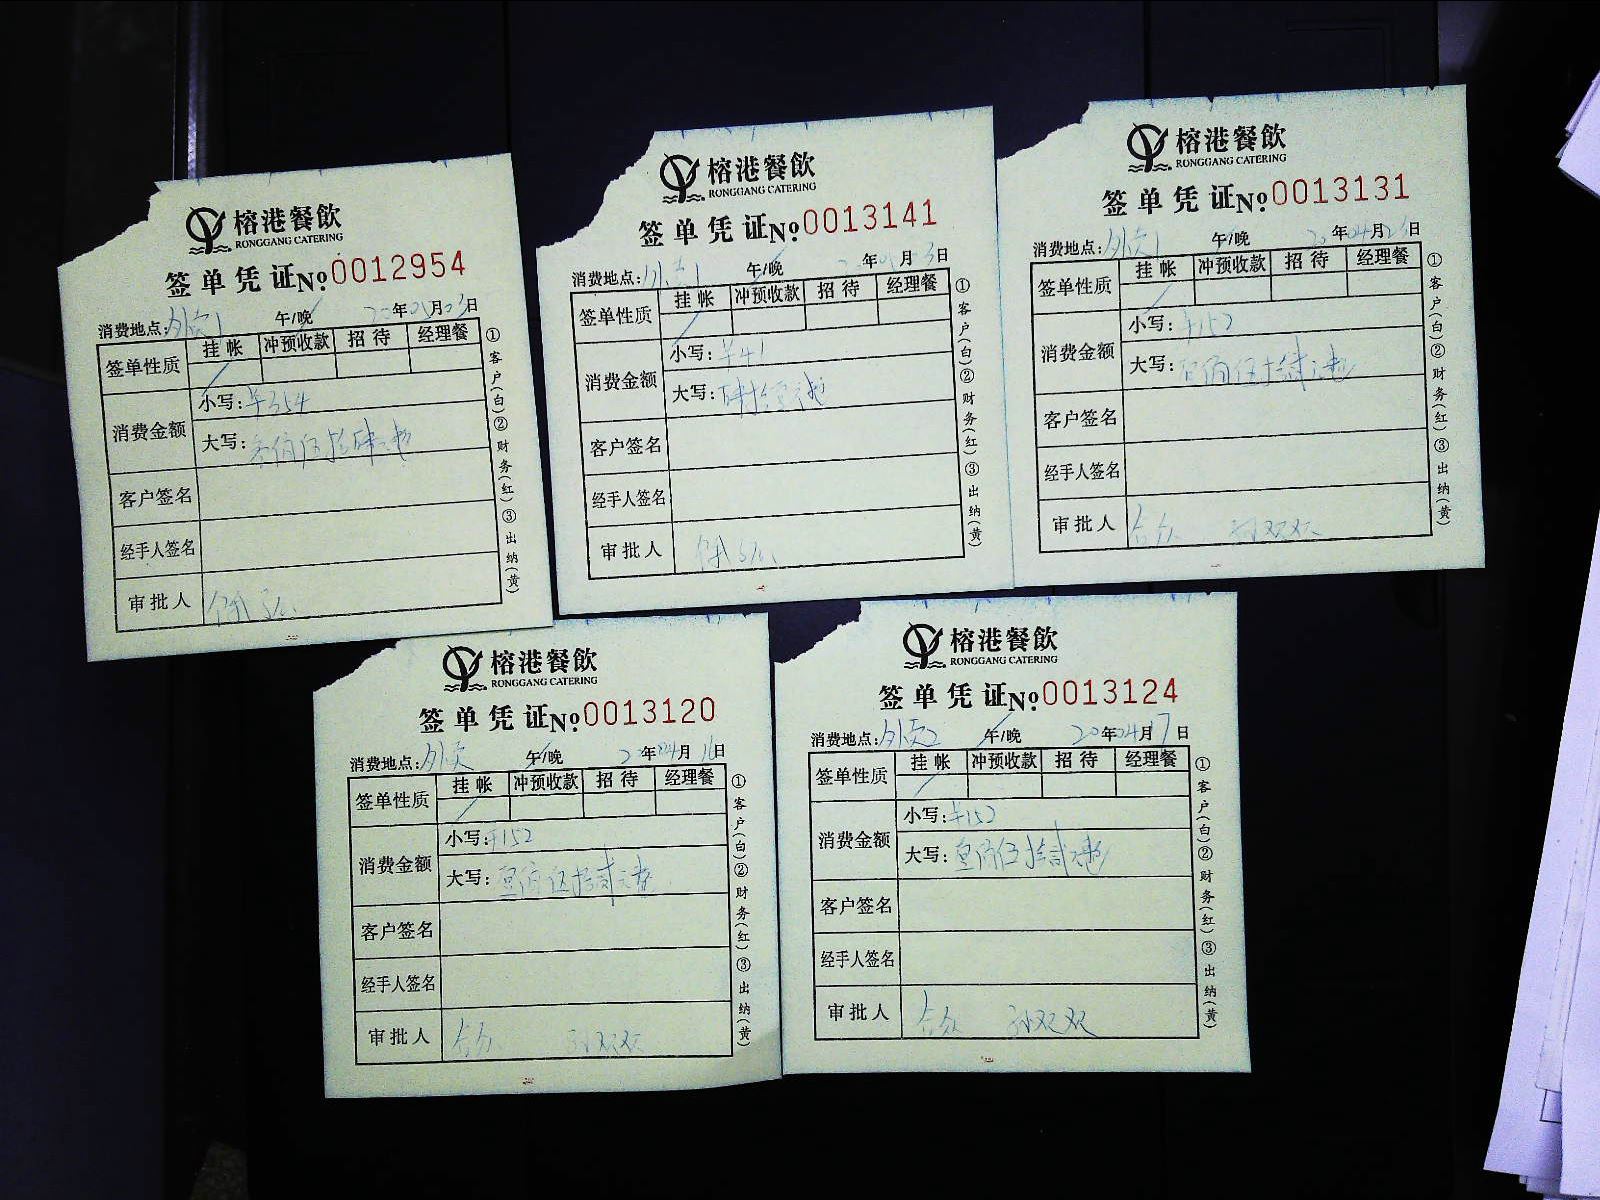 榕港餐飲
RONGGANG CATERING
签单凭证 №0012954
消费地点:外卖1 午/晚 20年05月03日
签单性质 挂帐 冲预收款 招待 经理餐
消费金额 小写:¥354
大写:叁佰伍拾肆元整
客户签名
经手人签名
审批人
①客户(白)②财务(红)③出纳(黄)
榕港餐飲
RONGGANG CATERING
签单凭证 №0013141
消费地点:外卖1 午/晚 年 月 3日
签单性质 挂帐 冲预收款 招待 经理餐
消费金额 小写:¥41
大写:肆拾壹元整
客户签名
经手人签名
审批人
①客户(白)②财务(红)③出纳(黄)
榕港餐飲
RONGGANG CATERING
签单凭证 №0013131
消费地点:外卖1 午/晚 20年04月 日
签单性质 挂帐 冲预收款 招待 经理餐
消费金额 小写:¥152
大写:壹佰伍拾贰元整
客户签名
经手人签名
审批人 合众 孙双双
①客户(白)②财务(红)③出纳(黄)
榕港餐飲
RONGGANG CATERING
签单凭证 №0013120
消费地点:外卖 午/晚 20年04月16日
签单性质 挂帐 冲预收款 招待 经理餐
消费金额 小写:¥152
大写:壹佰伍拾贰元整
客户签名
经手人签名
审批人 合众 孙双双
①客户(白)②财务(红)③出纳(黄)
榕港餐飲
RONGGANG CATERING
签单凭证 №0013124
消费地点:外卖2 午/晚 20年04月17日
签单性质 挂帐 冲预收款 招待 经理餐
消费金额 小写:¥152
大写:壹佰伍拾贰元整
客户签名
经手人签名
审批人 合众 孙双双
①客户(白)②财务(红)③出纳(黄)